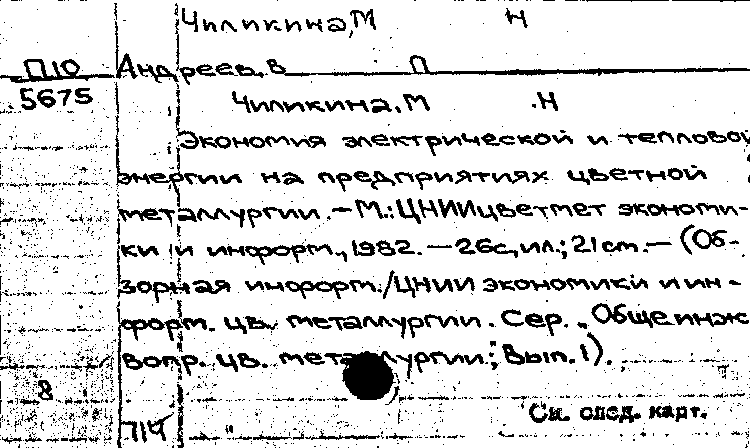 Чиликина, М Н
П10 Андреев, В П
5675 Чиликина, М .Н
Экономия электрической и тепловой
энергии на предприятиях цветной
металлургии. – М.: ЦНИИцветмет экономи-
ки и информ., 1982. – 26с, ил.; 21 см. – (Об-
зорная информ./ЦНИИ экономики и ин-
форм. цв. металлургии. Сер. „Общеинж.
вопр. цв. металлургии."; Вып. 1).
8
См. след. карт.